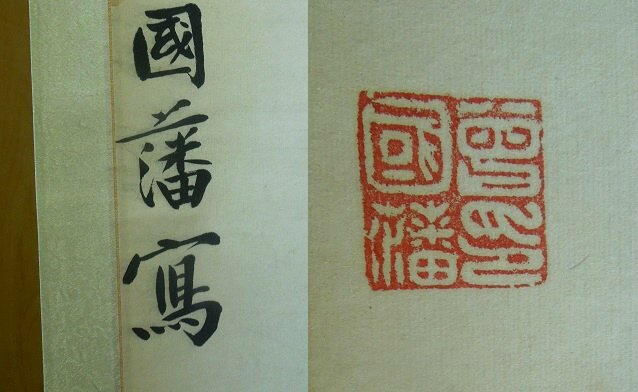 國藩寫
曾印
國藩